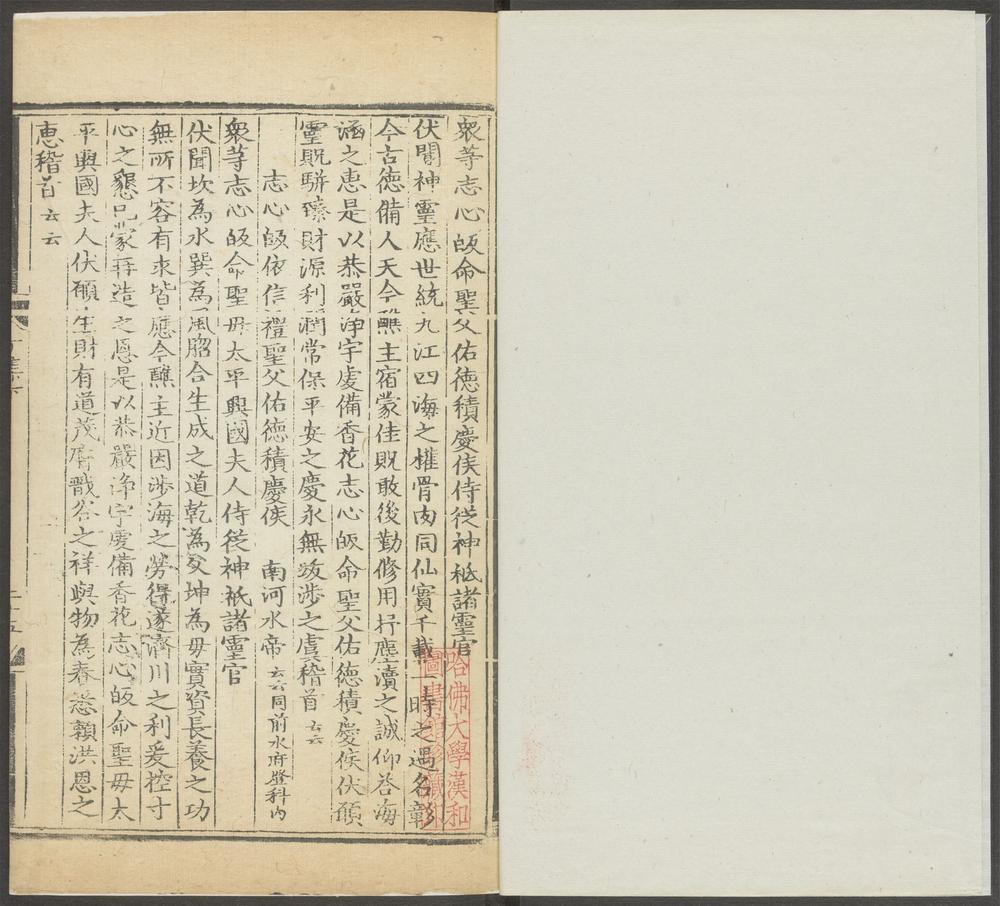 衆等志心皈命聖父佑德積慶侯侍從神祇諸靈官
伏聞神靈應世統九江四海之權骨肉同仙實千載一時之遇名彰
今古德備人天今醮主宿蒙佳貺敢後勤修用抒應瀆之誠仰答海
涵之惠是以恭嚴淨宇虔備香花志心皈命聖父佑德積慶侯伏願
靈貺駢臻財源利潤常保平安之慶永無跋涉之虞稽首云云
志心皈依信禮聖父佑德積慶侯 南河水帝云云同前水府燈科内
衆等志心皈命聖毋太平興國夫人侍從神祇諸靈官
伏聞坎為水巽為風脗合生成之道乾為父坤為毋實資長養之功
無所不容有求皆應今醮主近因涉海之勞得遂濟川之利爰控寸
心之懇兄蒙再造之恩是以恭嚴淨宇虔備香花志心皈命聖毋太
平興國夫人伏願生財有道茂膺戩谷之祥與物為春悉賴洪恩之
惠稽首云云
哈佛大學漢和
圖書館珍藏印